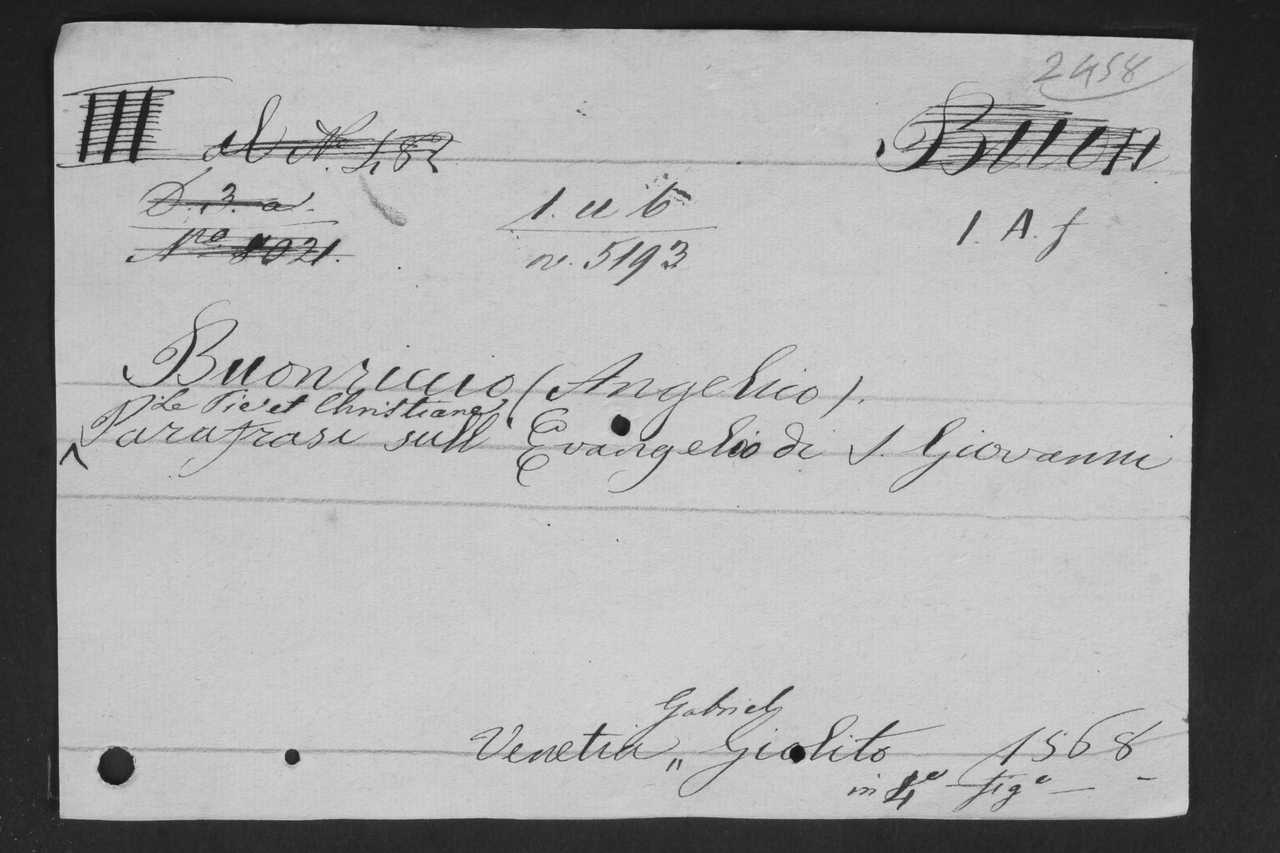 2458
III al No. 482 Buon
D. 3. a. 1. a b 1. A. f
Nro 8021. n. 5193
Buonriccio (Angelico).
Le Pie et Christiane
Parafrasi sull Evangelio di S. Giovanni
Gabriel
Venetia „ Giolito 1568
in 4o fige